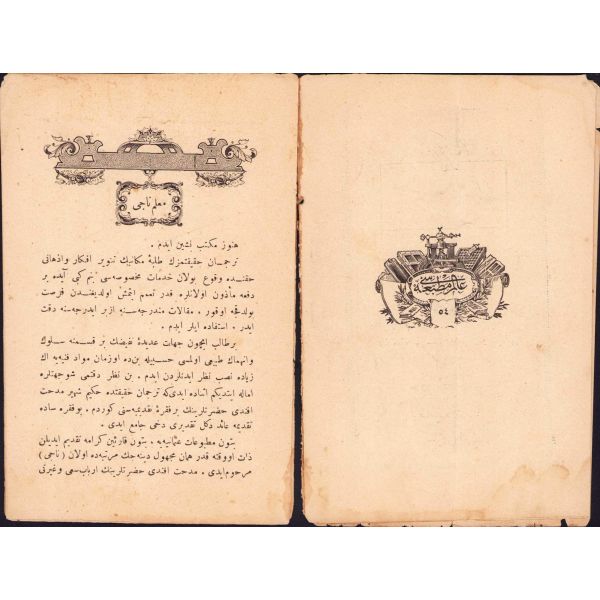 معلم ناجی
هنوز مکتب نشین ایدم .
ترجمان حقیقتمزك طلبهٔ مکاتبك تنویر افکار و اذهانی
حقنده وقوع بولان خدمات مخصوصه‌سی نم کبی آیده بر
دفعه مأذون اولانلره قدر تعمم ایتمش اولدیغندن فرصت
بولدقجه اوقور . مقالات مندرجه‌سنه از بر ایدرجه‌سنه دقت
ایدر . استفاده ایلر ایدم .
بر طالب ایچون جهات عدیدهٔ فیضك بر قسمنه سلوك
وانهماك طبیعی اولمسی حسبیله بن‌ده اوزمان مواد فنیه‌یه اك
زیاده نصب نظر ایدنلردن ایدم . بن نظر دقتمی شو جهتلره
اماله ایتدیکم اثناده ایدی‌که ترجمان حقیقتده حکیم شهیر مدحت
افندی حضرتلرینك بر فقرهٔ تقدیمیه‌سنی کوردم . بو فقره ساده
تقدیمه عائد دکل تقدیری دخی جامع ایدی .
بتون مطبوعات عثمانیه‌یه . بتون قارئین کرامه تقدیم ایدیلن
ذات اووقته قدر همان مجهول دینه‌جك مرتبه‌ده اولان ( ناجی )
مرحوم ایدی . مدحت افندی حضرتلرینك ارباب سعی وغیرتی
عالم مطبعه‌سی
٥٤